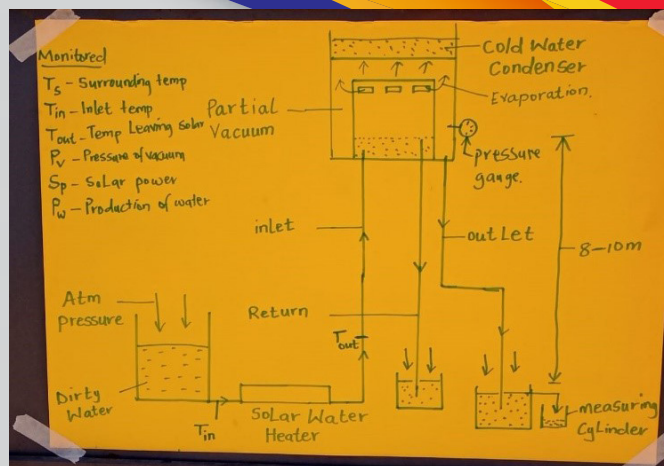 Monitored
Ts – Surrounding temp
Tin – Inlet temp
Tout – Temp Leaving solar
Pv – Pressure of vacuum
Sp – Solar power
Pw – Production of water
Cold Water
Condenser
Evaporation.
Partial
Vacuum
pressure
gauge.
inlet
outlet
8–10m
Atm
pressure
Return
Tout
Dirty
Water
Tin
Solar Water
Heater
measuring
cylinder